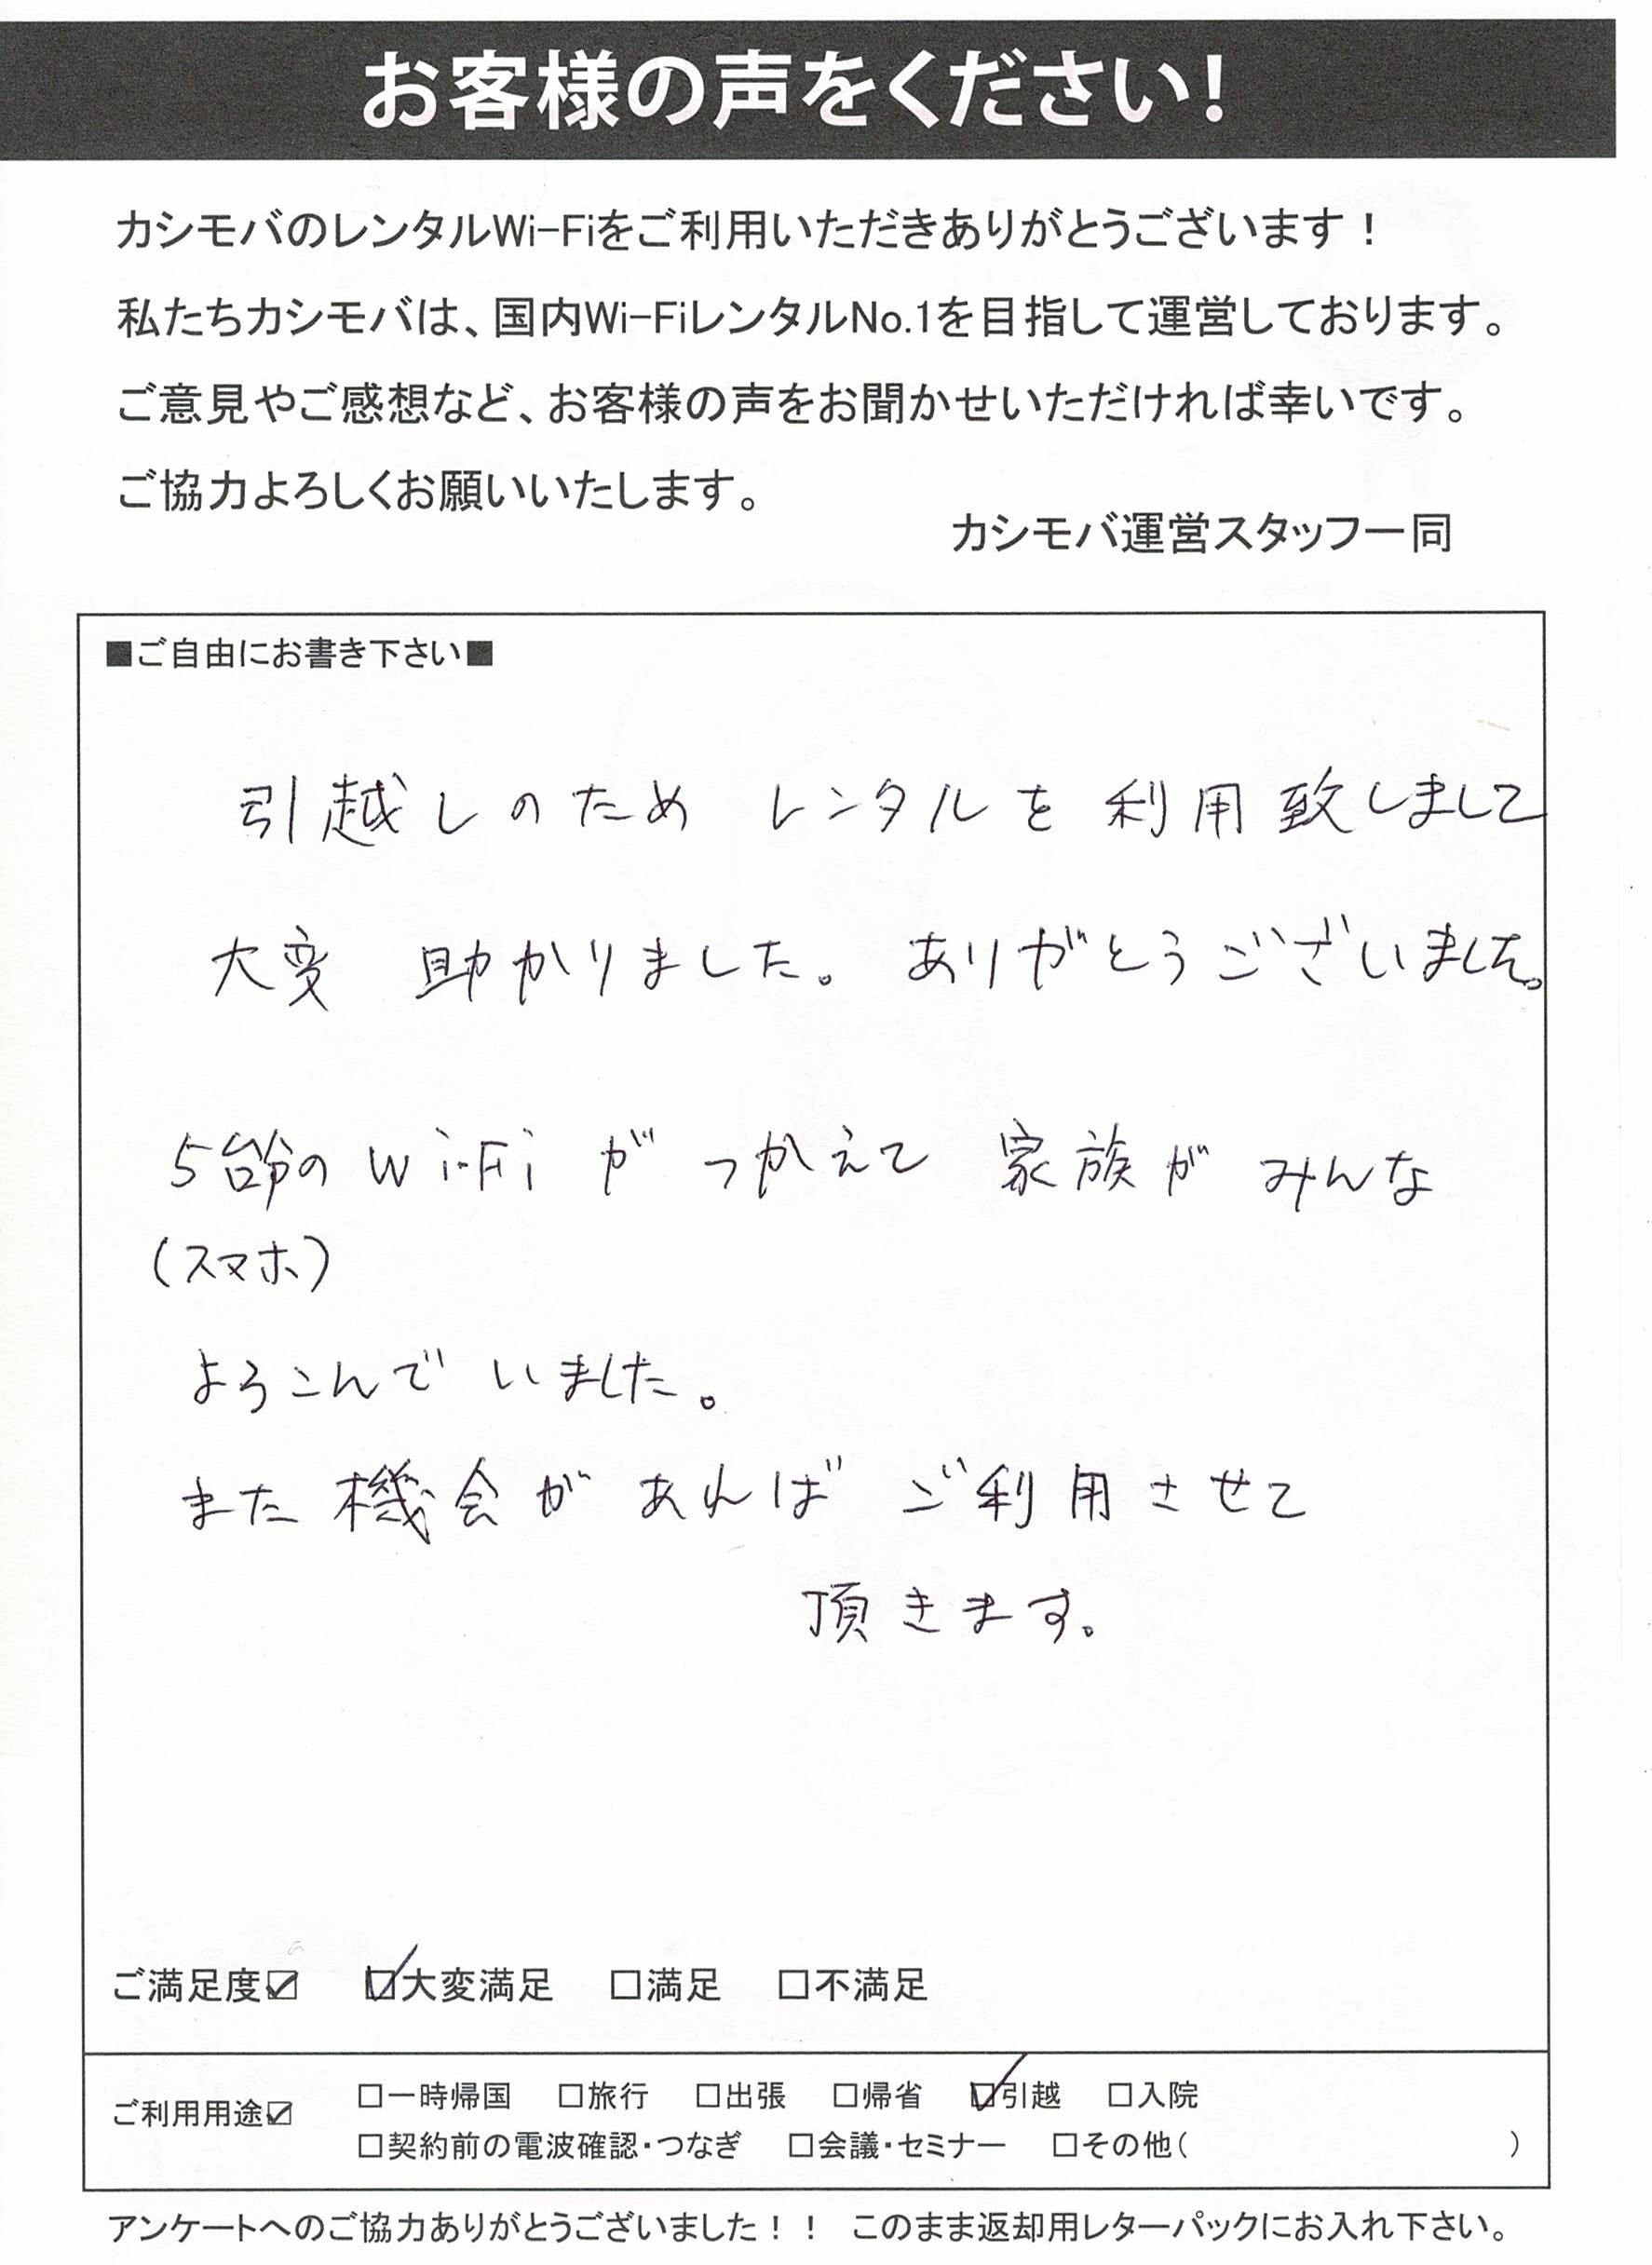 お客様の声をください!
カシモバのレンタルWi-Fiをご利用いただきありがとうございます！
私たちカシモバは、国内Wi-FiレンタルNo.1を目指して運営しております。
ご意見やご感想など、お客様の声をお聞かせいただければ幸いです。
ご協力よろしくお願いいたします。
カシモバ運営スタッフ一同
■ご自由にお書き下さい■
引越しのため レンタルを利用致しまして
大変 助かりました。 ありがとうございました。
5台分の Wi-Fi が つかえて 家族が みんな
(スマホ)
よろこんで いました。
また 機会が あれば ご利用させて
頂きます。
ご満足度☑ ☑大変満足 □満足 □不満足
ご利用用途☑ □一時帰国 □旅行 □出張 □帰省 ☑引越 □入院
□契約前の電波確認・つなぎ □会議・セミナー □その他( )
アンケートへのご協力ありがとうございました！！ このまま返却用レターパックにお入れ下さい。